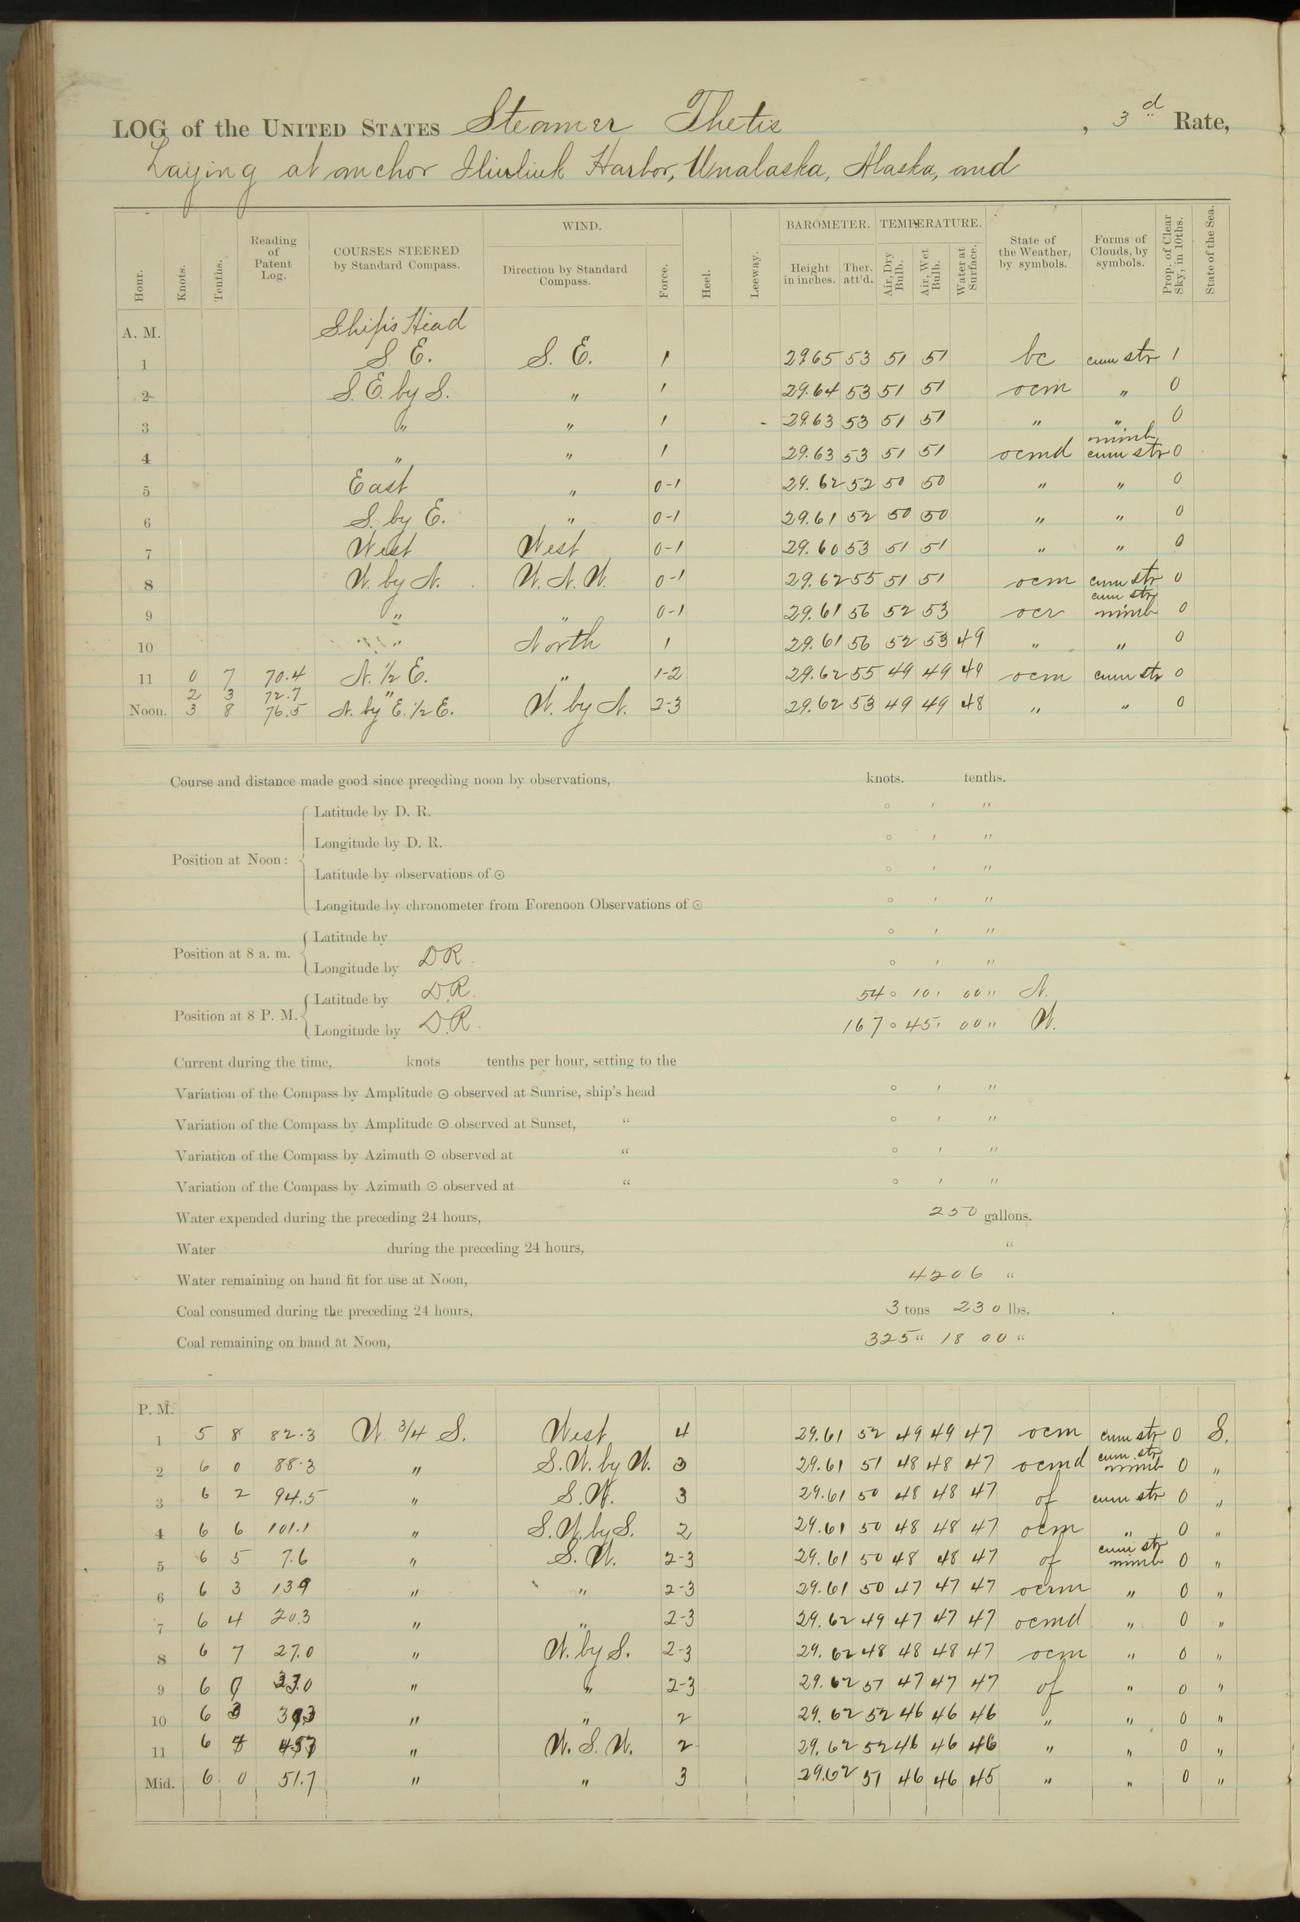 LOG of the UNITED STATES Steamer Thetis , 3d Rate,
Laying at anchor Iliuliuk Harbor, Unalaska, Alaska, and
Hour. Knots. Tenths. Reading of Patent Log. COURSES STEERED by Standard Compass. WIND. Direction by Standard Compass. Force. Heel. Leeway. BAROMETER. Height in inches. Ther. att'd. TEMPERATURE. Air, Dry Bulb. Air, Wet Bulb. Water at Surface. State of the Weather, by symbols. Forms of Clouds, by symbols. Prop. of Clear Sky, in 10ths. State of the Sea.
A. M. Ship's Head
1 S. E. S. E. 1 29.65 53 51 51 bc cum str 1
2 S. E. by S. " 1 29.64 53 51 51 ocm " 0
3 " " 1 29.63 53 51 51 " " 0
4 " " 1 29.63 53 51 51 ocmd nimb cum str 0
5 East " 0-1 29.62 52 50 50 " " 0
6 S. by E. " 0-1 29.61 52 50 50 " " 0
7 West West 0-1 29.60 53 51 51 " " 0
8 W. by N. W. N. W. 0-1 29.62 55 51 51 ocm cum str 0
9 " " 0-1 29.61 56 52 53 ocr cum str nimb 0
10 " North 1 29.61 56 52 53 49 " " 0
11 0 7 70.4 N. 1/2 E. " 1-2 29.62 55 49 49 49 ocm cum str 0
2 3 72.7 "
Noon. 3 8 76.5 N. by E. 1/2 E. W. by N. 2-3 29.62 53 49 49 48 " " 0
Course and distance made good since preceding noon by observations, knots. tenths.
Position at Noon:
Latitude by D. R. ° ' "
Longitude by D. R. ° ' "
Latitude by observations of ☉ ° ' "
Longitude by chronometer from Forenoon Observations of ☉ ° ' "
Position at 8 a. m.
Latitude by ° ' "
Longitude by D.R. ° ' "
Position at 8 P. M.
Latitude by D.R. 54° 10' 00" N.
Longitude by D.R. 167° 45' 00" W.
Current during the time, knots tenths per hour, setting to the
Variation of the Compass by Amplitude ☉ observed at Sunrise, ship's head ° ' "
Variation of the Compass by Amplitude ☉ observed at Sunset, " ° ' "
Variation of the Compass by Azimuth ☉ observed at " ° ' "
Variation of the Compass by Azimuth ☉ observed at " ° ' "
Water expended during the preceding 24 hours, 250 gallons.
Water during the preceding 24 hours, "
Water remaining on hand fit for use at Noon, 4206 "
Coal consumed during the preceding 24 hours, 3 tons 230 lbs.
Coal remaining on hand at Noon, 325 " 1800 "
P. M.
1 5 8 82.3 W. 3/4 S. West 4 29.61 52 49 49 47 ocm cum str 0 S.
2 6 0 88.3 " S. W. by W. 3 29.61 51 48 48 47 ocmd cum. str nimb 0 "
3 6 2 94.5 " S. W. 3 29.61 50 48 48 47 of cum str 0 "
4 6 6 101.1 " S. W. by S. 2 29.61 50 48 48 47 ocm " 0 "
5 6 5 7.6 " S. W. 2-3 29.61 50 48 48 47 of cum str nimb 0 "
6 6 3 13.9 " " 2-3 29.61 50 47 47 47 ocrm " 0 "
7 6 4 20.3 " " 2-3 29.62 49 47 47 47 ocmd " 0 "
8 6 7 27.0 " W. by S. 2-3 29.62 48 48 48 47 ocm " 0 "
9 6 " " 2-3 29.62 51 47 47 47 of " 0 "
10 6 " " 2 29.62 52 46 46 46 " " 0 "
11 6 " W. S. W. 2 29.62 52 46 46 46 " " 0 "
Mid. 6 0 51.7 " " 3 29.62 51 46 46 45 " " 0 "